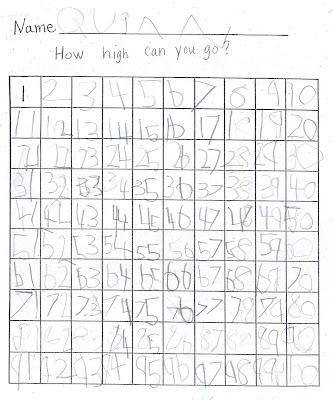 Name QUINN
How high can you go?
1 2 3 4 5 6 7 8 9 10
11 12 13 14 15 16 17 18 19 20
21 22 23 24 25 26 27 28 29 30
31 32 33 34 35 36 37 38 39 40
41 42 43 44 45 46 47 48 49 50
51 52 53 54 55 56 57 58 59 60
61 62 63 64 65 66 67 68 69 70
71 72 73 74 75 76 77 78 79 80
81 82 84 85 86 87 88 89 90
91 92 93 94 95 96 97 98 99 100